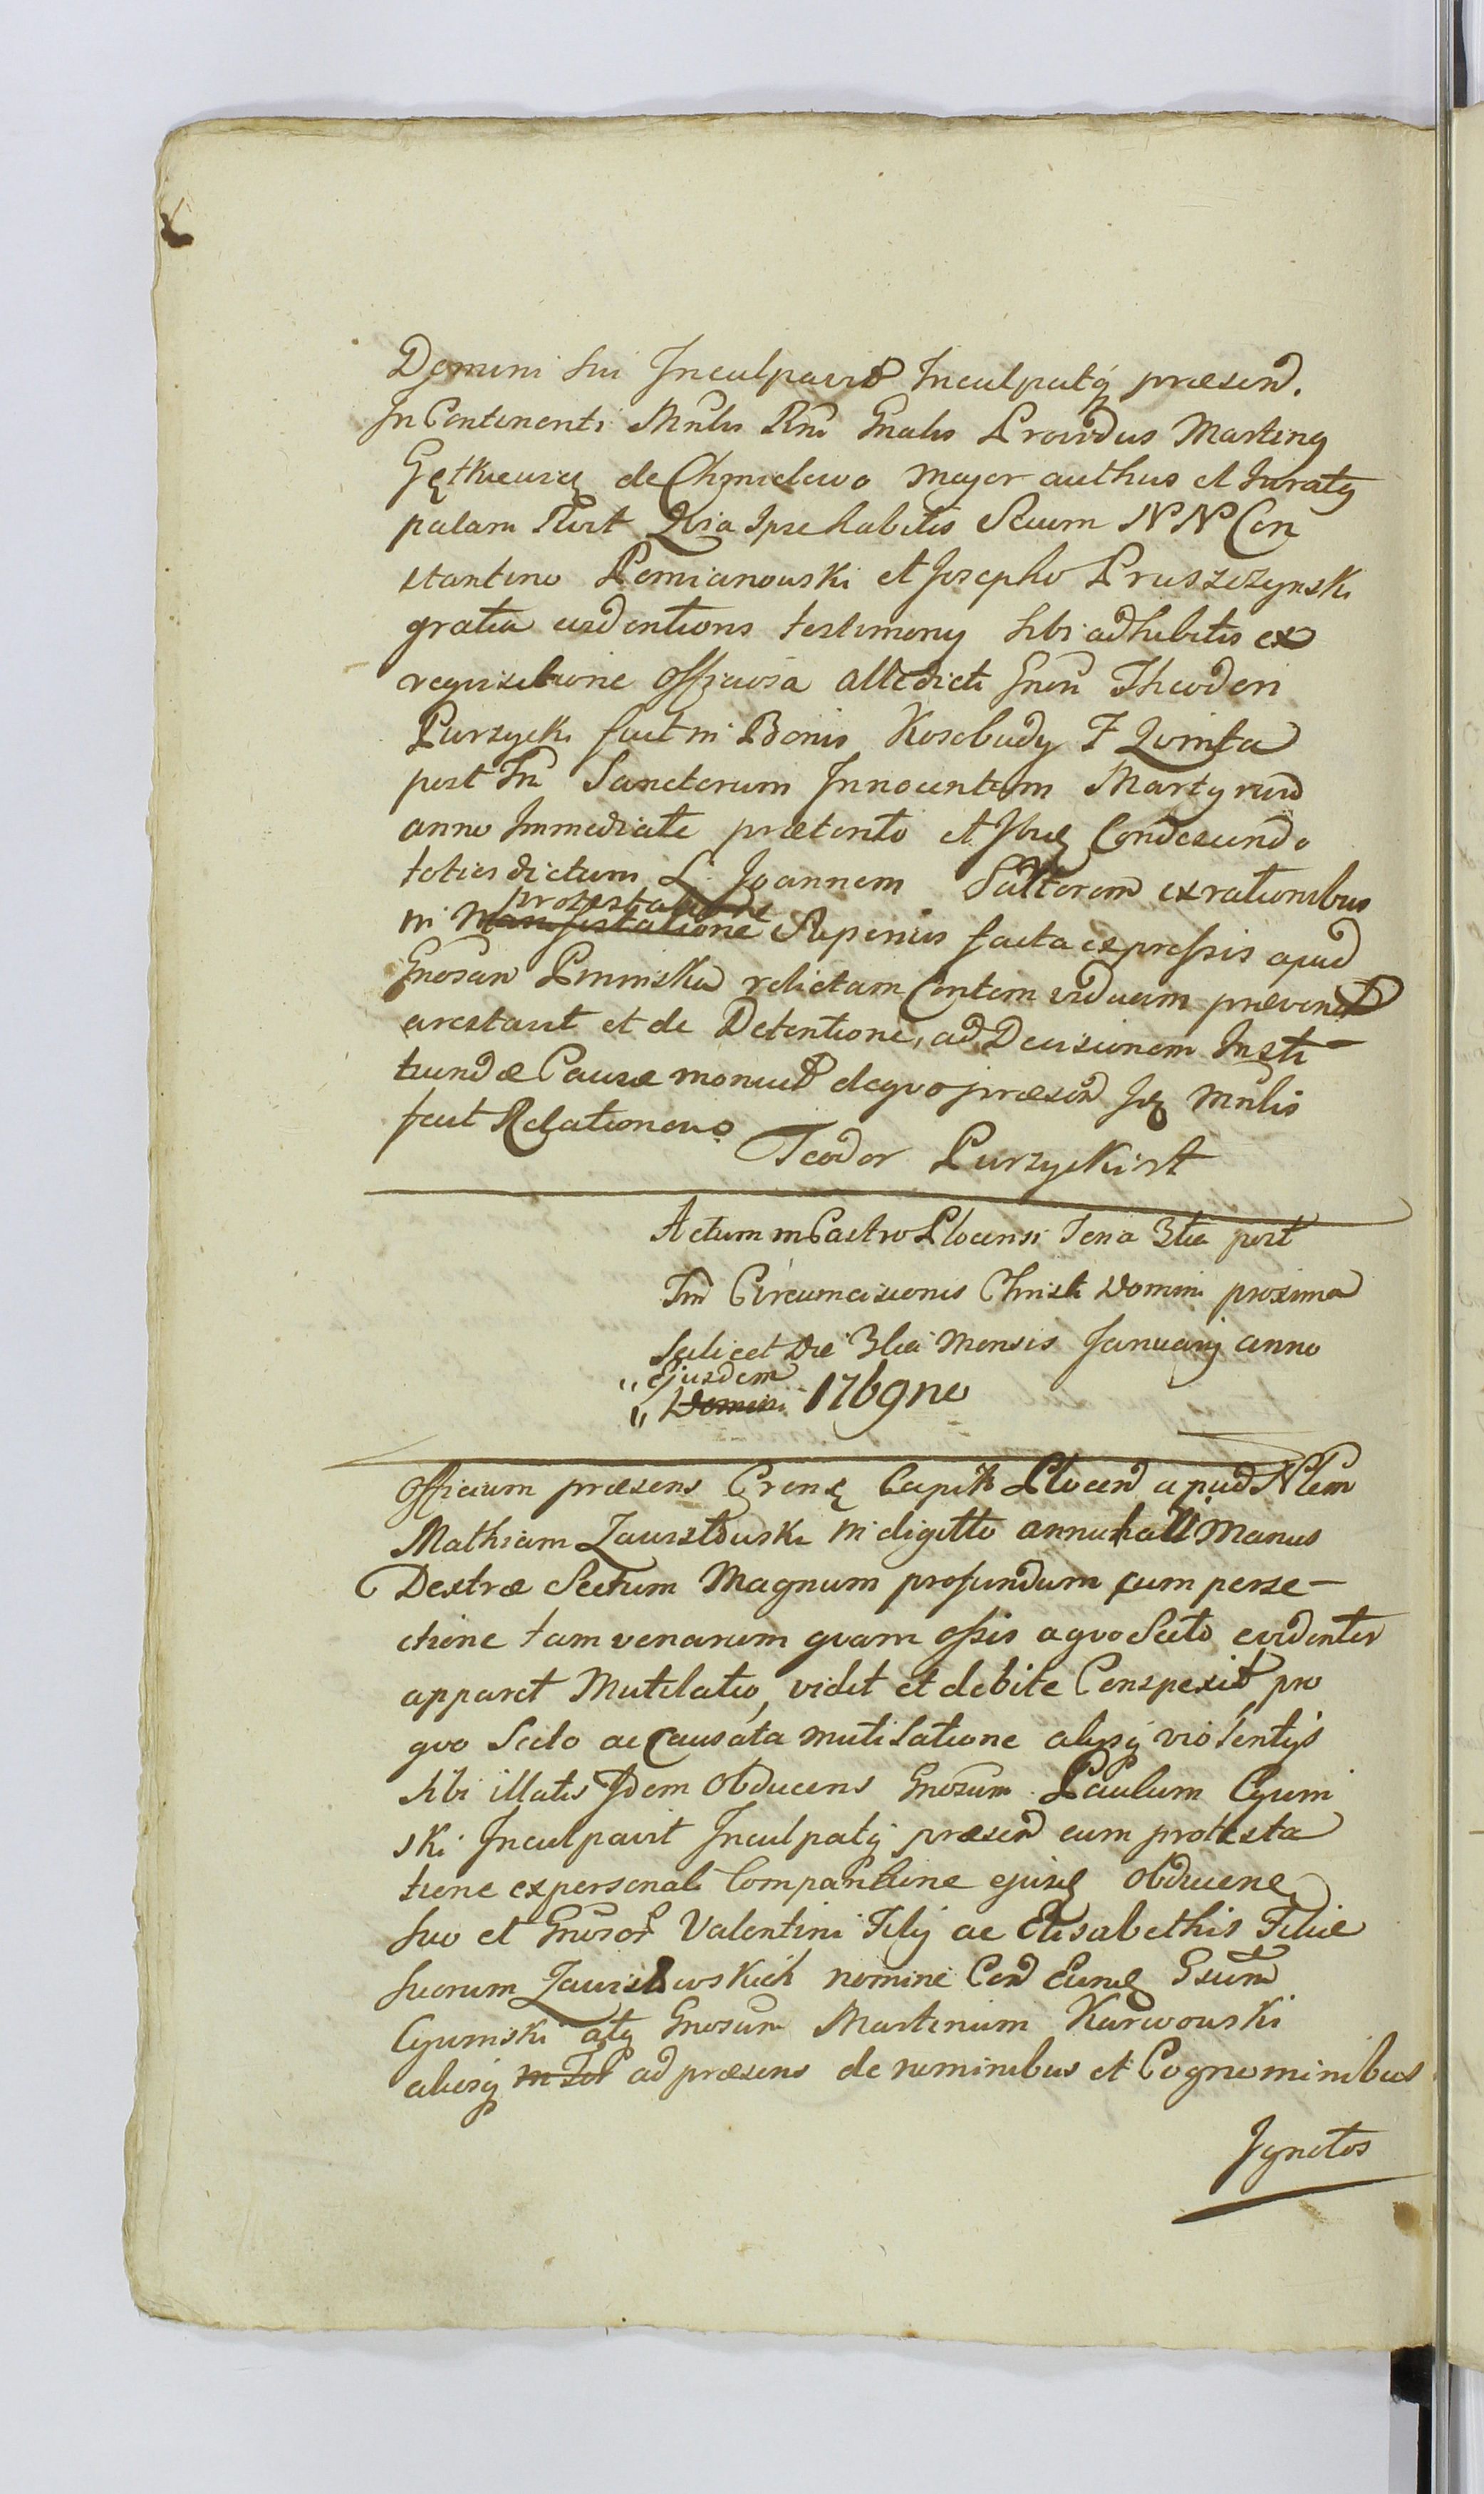 Domini sui Inculpavit Inculpatq præsend.
In Continenti Mnlis Rni Gnalis Providus Martinq
Gętkiewicz de Chmielewo Major authus et Juratq
palam Rlvit Qvia Ipse habitis Secum NN Con
stantino Pomianowski et Josepho Pruszczynski
gratia evidentioris testimony sibi adhibitis ex
reqvisitione officiosa attedicti Gnsi Theodori
Purzycki fuit in Bonis Kosobudy F Qvinta
post Fm Sanctorum Innocentum Martyrum
anno Immediate prætento et Ibiq Condescendo
toties dictum L. Joannem Saltorem ex rationibus
protestatione
in Manifestatione Superius facta expressis apud
Gnosam Pninska relictam Contem viduam prævenit
arestavit et de Detentione, ad Decisionem Insti-
tuendæ Causæ monuit deqvo præsend Idq Mnlis
fecit Relationem
Teodor Purzycki mt
Actum in Castro Plocensi Feria 3tia post
Fm Circumcisionis Christi Domini proxima
Scilicet Die 3tia Mensis Januarij anno
„ Ejusdem
„ Domini 1769no
Officium præsens Crense Capitle Plocen apud Nlem
Mathiam Zawistowski in digitto annuhalli Manus
Dextræ Sectum Magnum profundum cum perse-
ctione tam venarum qvam ossis aqvo Secto evidenter
apparet Mutilatio, vidit et debite Conspexit pro
qvo Secto ac Causata mutilatione alysq violentys
sibi illatis Idem Obducens Gnosum Paulum Cyumi
ski Inculpavit Inculpatq præsend cum protesta
tione ex personali Comparitione ejusd Obducene
suo et Gnosor Valentini Filij ac Elisabethis Filiæ
suorum Zawistowskich nomine Con Eund Gsum
Cyumiski atq Gnosum Martinum Karwowski
aliosq in Fol ad præsens de nominibus et Cognominibus
Ignotos